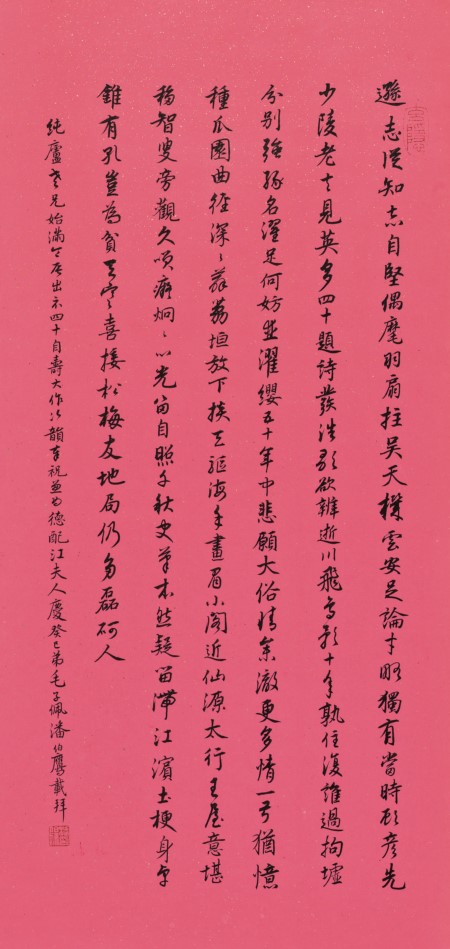 遜志從知志自堅偶麾羽扇拄吳天機雲安足論才略獨有當時顧彥先
少陵老去見英多四十題詩發浩歌欲辨逝川飛鳥影十年孰住復誰過拘墟
分別強緣名濯足何妨並濯纓五十年中悲願大俗情參澈更多情一弓猶憶
種瓜園曲徑深深薜荔垣放下掞天驅海手畫眉小閣近仙源太行王屋意堪
移智叟旁觀久嘆癡炯炯心光留自照千秋史筆本然疑留滯江濱土梗身卓
錐有孔豈為貧天寒喜接松梅友地局仍多磊砢人
純廬老兄始滿出示四十自壽大作次韻奉祝並為德配江夫人慶癸巳弟毛子佩潘伯鷹載拜